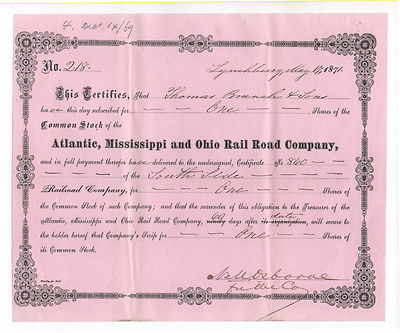 F. Decr 14/69
No. 218. Lynchburg May 17, 1871.
This Certifies, That Thomas Branch & Sons
have this day subscribed for One Shares of the
Common Stock of the
Atlantic, Mississippi and Ohio Rail Road Company,
and in full payment therefor have delivered to the undersigned, Certificate No 860
of the South Side
Railroad Company, for One Shares of
the Common Stock of such Company; and that the surrender of this obligation to the Treasurer of the
Atlantic, Mississippi and Ohio Rail Road Company, ninety 60 days after its organization, date will secure to
the holder hereof that Company's Scrip for One Shares of
its Common Stock.